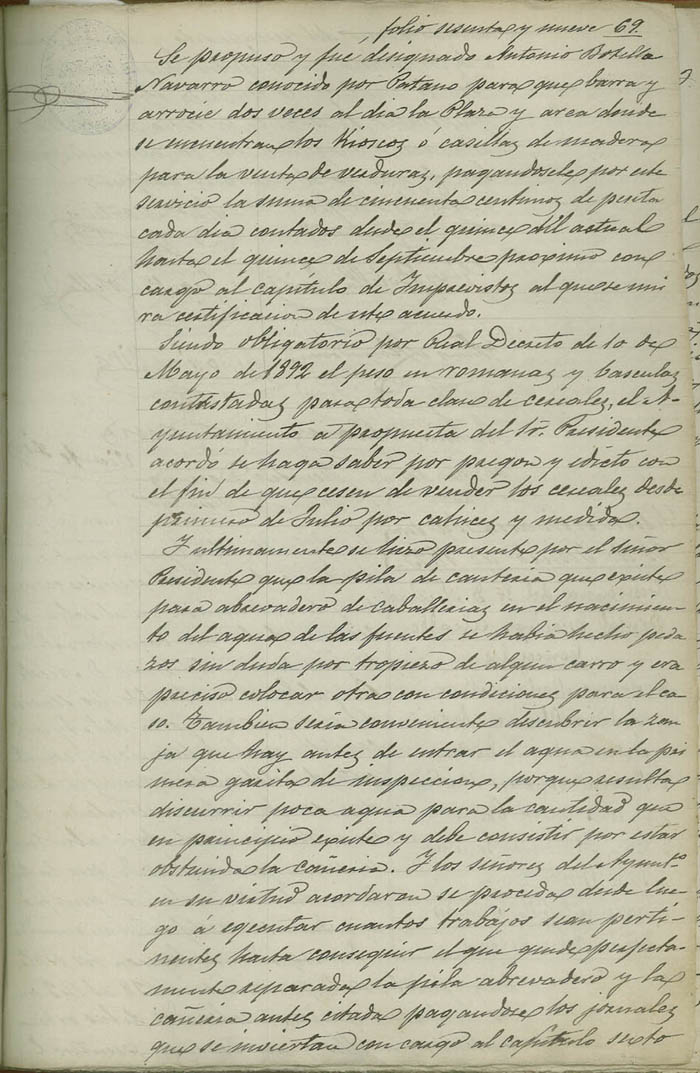 folio sesenta y nueve 69.
Se propuso y fue designado Antonio Botella
Navarro conocido por Patano para que barra y
arrocie dos veces al dia la Plaza y area donde
se encuentran los Kioscos ó casillas de madera
para la venta de verduras, pagandosele por este
servicio la suma de cincuenta centimos de peseta
cada dia contados desde el quince del actual
hasta el quince de Septiembre proximo con
cargo al capítulo de Imprevistos al que se uni
ra certificacion de este acuerdo.
Siendo obligatorio por Real Decreto de 10 de
Mayo de 1892 el peso en romanas y basculas
contrastadas para toda clase de cereales, el A-
yuntamiento a propuesta del Sr. Presidente
acordó se haga saber por pregon y edicto con
el fin de que cesen de vender los cereales desde
primero de Julio por cahices y medida.
Y ultimamente se hizo presente por el Señor
Presidente que la pila de canteria que existe
para abrevadero de caballerias en el nacimien-
to del agua de las fuentes se habia hecho peda
zos sin duda por tropiezo de algun carro y era
preciso colocar otra con condiciones para el ca-
so. Tambien seria conveniente descubrir la zan
ja que hay antes de entrar el agua en la pri
mera garita de inspeccion, porque resulta
discurrir poca agua para la cantidad que
en principio existe y debe consistir por estar
obstruida la cañeria. Y los señores del Ayuntº
en su virtud acordaron se proceda desde lue-
go á egecutar cuantos trabajos sean perti-
nentes hasta conseguir el que quede perfecta-
mente reparada la pila abrevadero y la
cañeria antes citada pagandose los jornales
que se inviertan con cargo al capítulo sexto